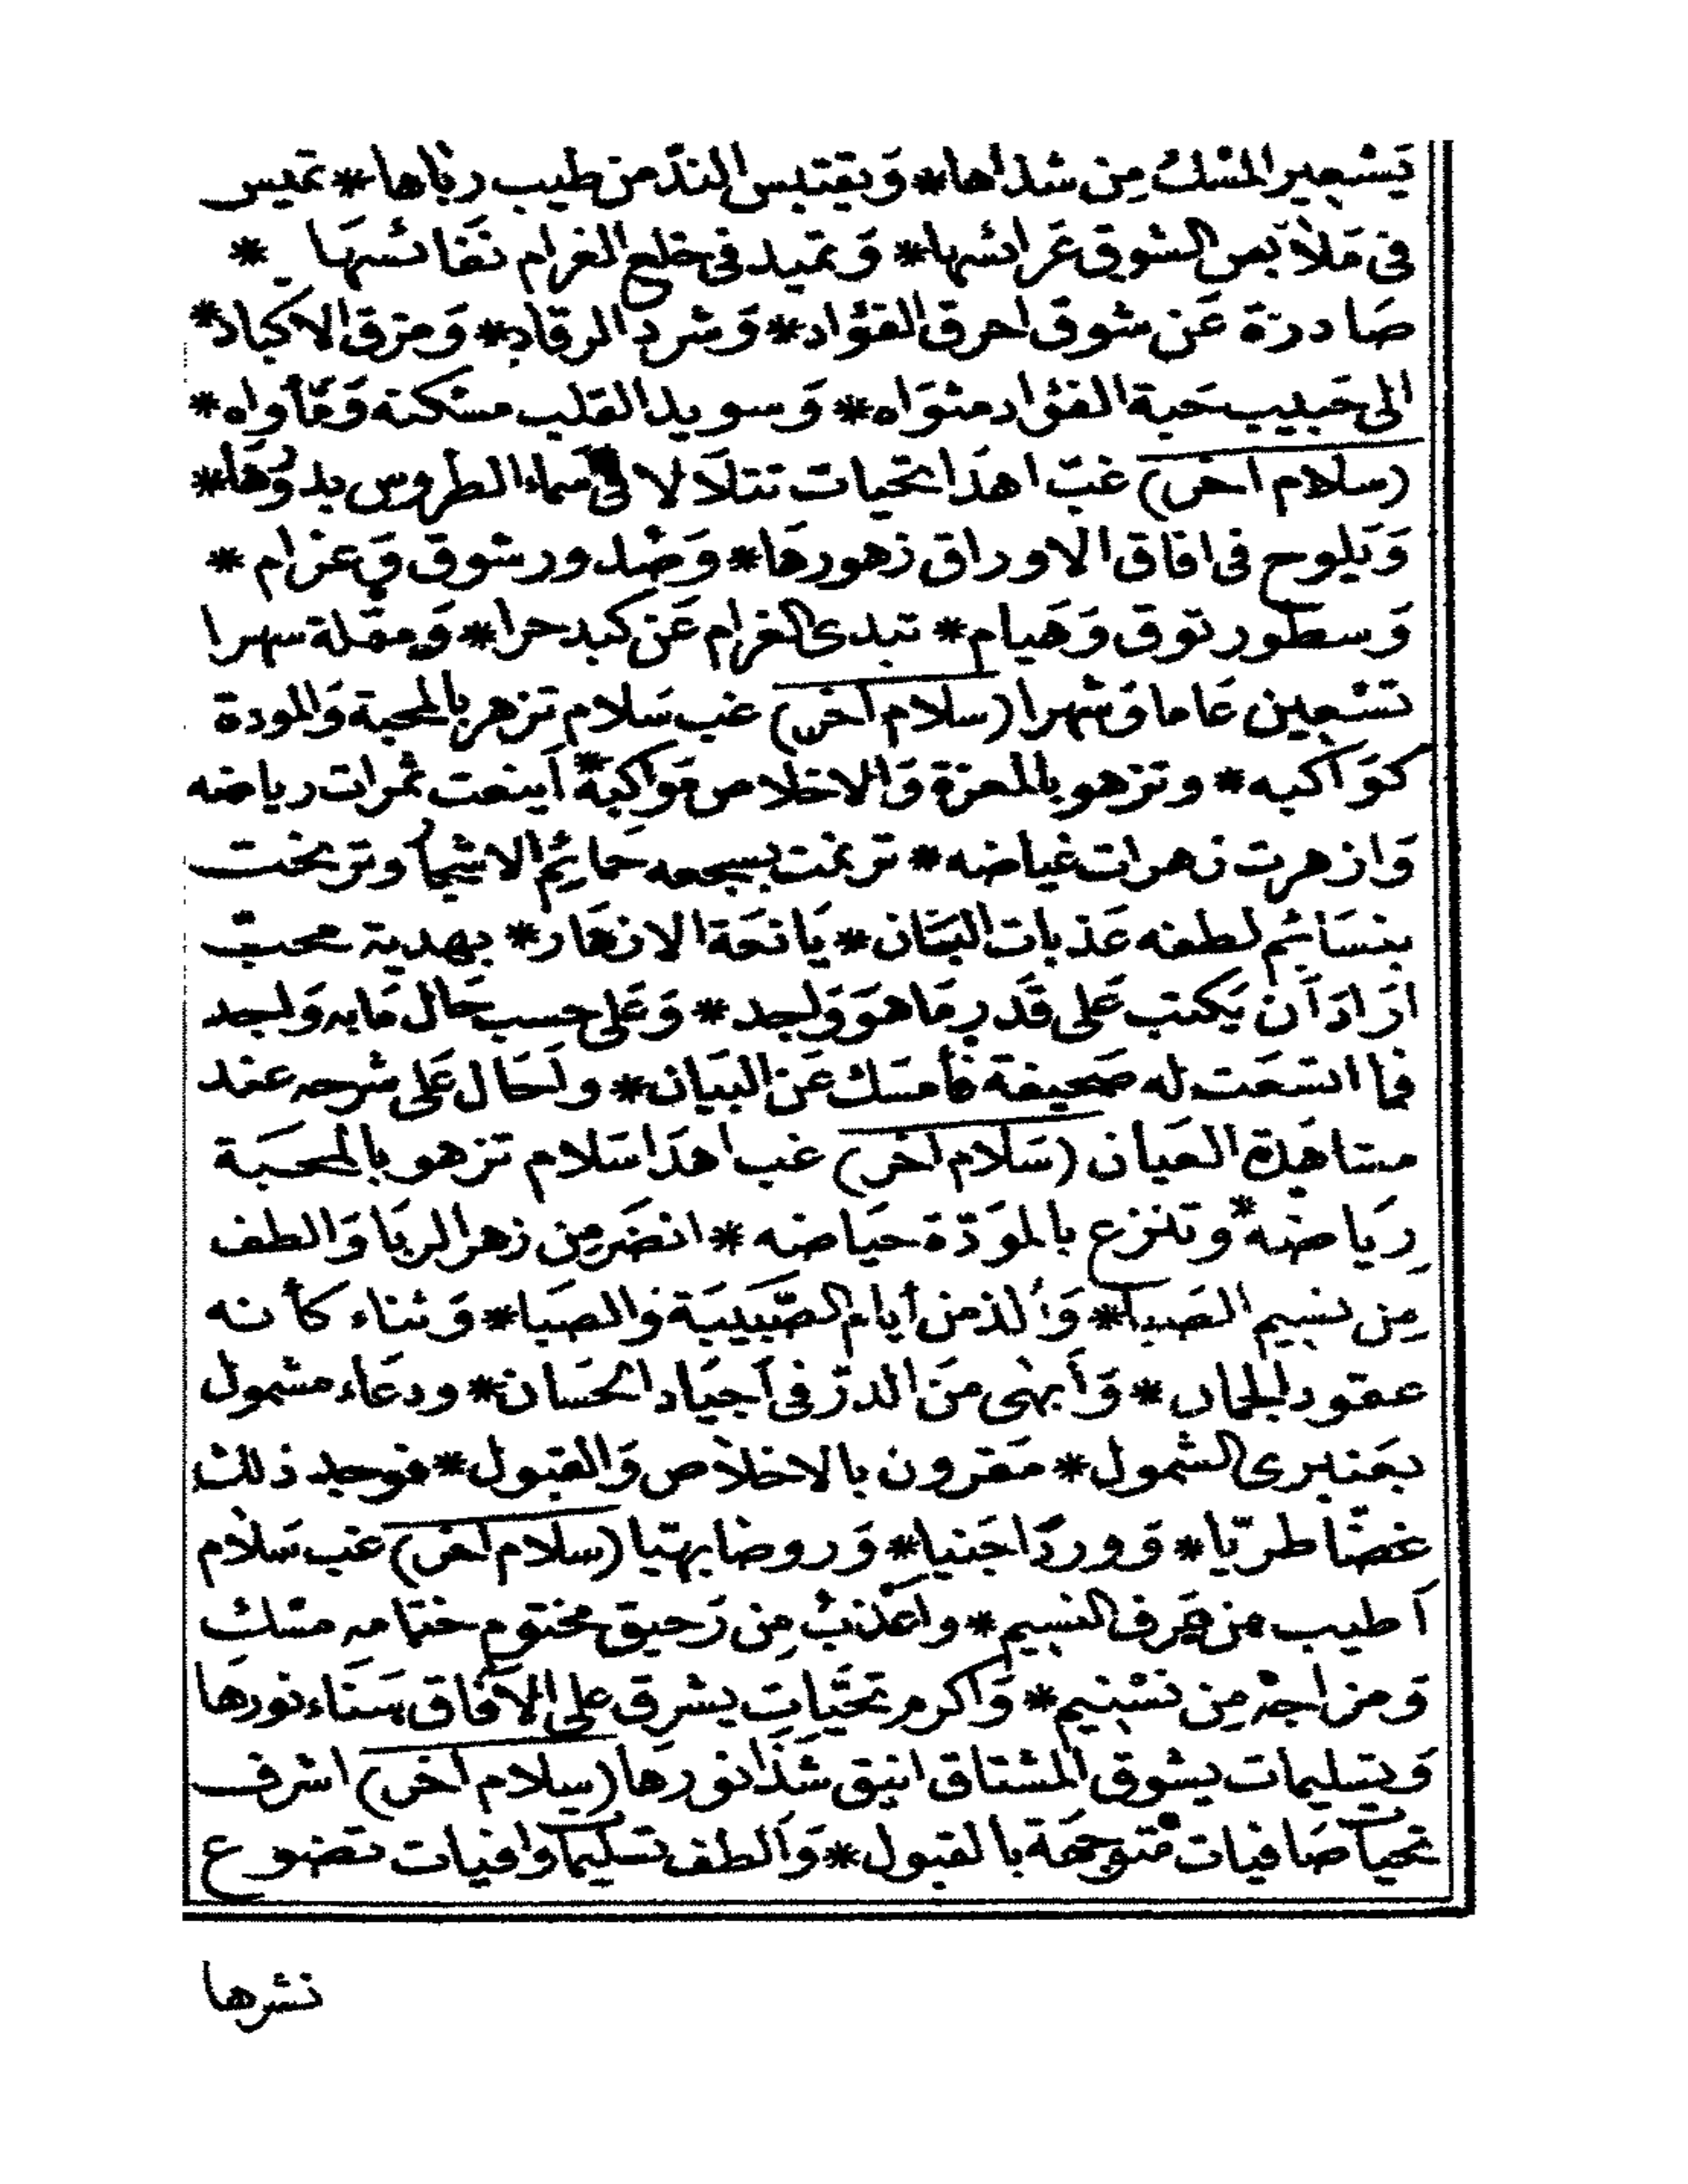 يَسْتعير المسْك مِن شذاها * وَيقتبس الندّ من طيب رباها * تميس
في مَلاَبس الشوق عَرائسها * وَتميد في خلع الغرام نفَائسهَا *
صَادرَة عَن شوق احرق الفؤاد * وَشرد الرقاد * وَمزق الاكباد *
الى حَبيب حَبة الفؤاد مثوَاه * وَسويدا القلب مسْكنه وَمَأواه *
(سلام اخر) غبّ اهدَا تحيات تتلألا في سَماء الطروس بدُورُهَا *
وَيَلوح في افاق الاوراق زهورهَا * وَصْدور شوق وَغرام *
وَسطور توق وَهَيام * تبدى الغرام عَن كبد حرا * وَمقلة سهرا
تسْتعين عَاما وَشهرا (سلام اخر) غب سَلام تزهر بالمحبة وَالمودة
كوَاكبه * وتزهو بالمعزة وَالاخلاص موَاكبهُ * أينعت ثمرات رياضه
وَازهرت زهرات غياضه * ترنمت بسجعه حمَائِم الاشجار وترنحت
بنسَائِم لطفه عَذبات البَان * يَانعَة الازهَار * بهدية محبّ
ارَادَ أن يَكتب عَلى قَدرِ مَا هوَ وَاجد * وَعَلى حسب حَال مَابه وَاجد
فما اتسَعَت له صَحيفة فأمسَك عَن البَيان * واحَال عَلى شرحه عند
مشاهَدة العيَان (سَلام اخر) غب اهدَا سَلام تزهو بالمحبَة
رِيَاضه * وتنزع بالموَدّة حيَاضه * انضَر مِن زهر الربَا وَالطف
مِن نسيم الصَبا * وَألذ من أيام الصّبَيبَة والصبَا * وَثناء كأنه
عقود الجمان * وَأَبهى منَ الدرّ في أجيَاد الحسَان * ودعَاء مشمول
بعَنبرى الشمول * مَقرون بالاخلاَص وَالقبول * فوجد ذلك
غضّا طريّا * وَورْدًا جَنيا * وَروضا بهيّا (سلام اخر) غب سَلام
أطيب من عَرف النسيم * واعَذبُ مِن رَحيق مختوم ختامه مسْك
وَمزاجهُ مِن تسْنيم * وَاكرم تحيَّاتٍ يشرق على الآفاق سَنَاء نورهَا
وَتسليمات يشوق المشتاق انيق شَذَا نورهَا (سلام اخر) اشرف
تحيات صَافيات متوجهَة بالقبول * وَألطف تسليمات وافيات تضوع
نشرها